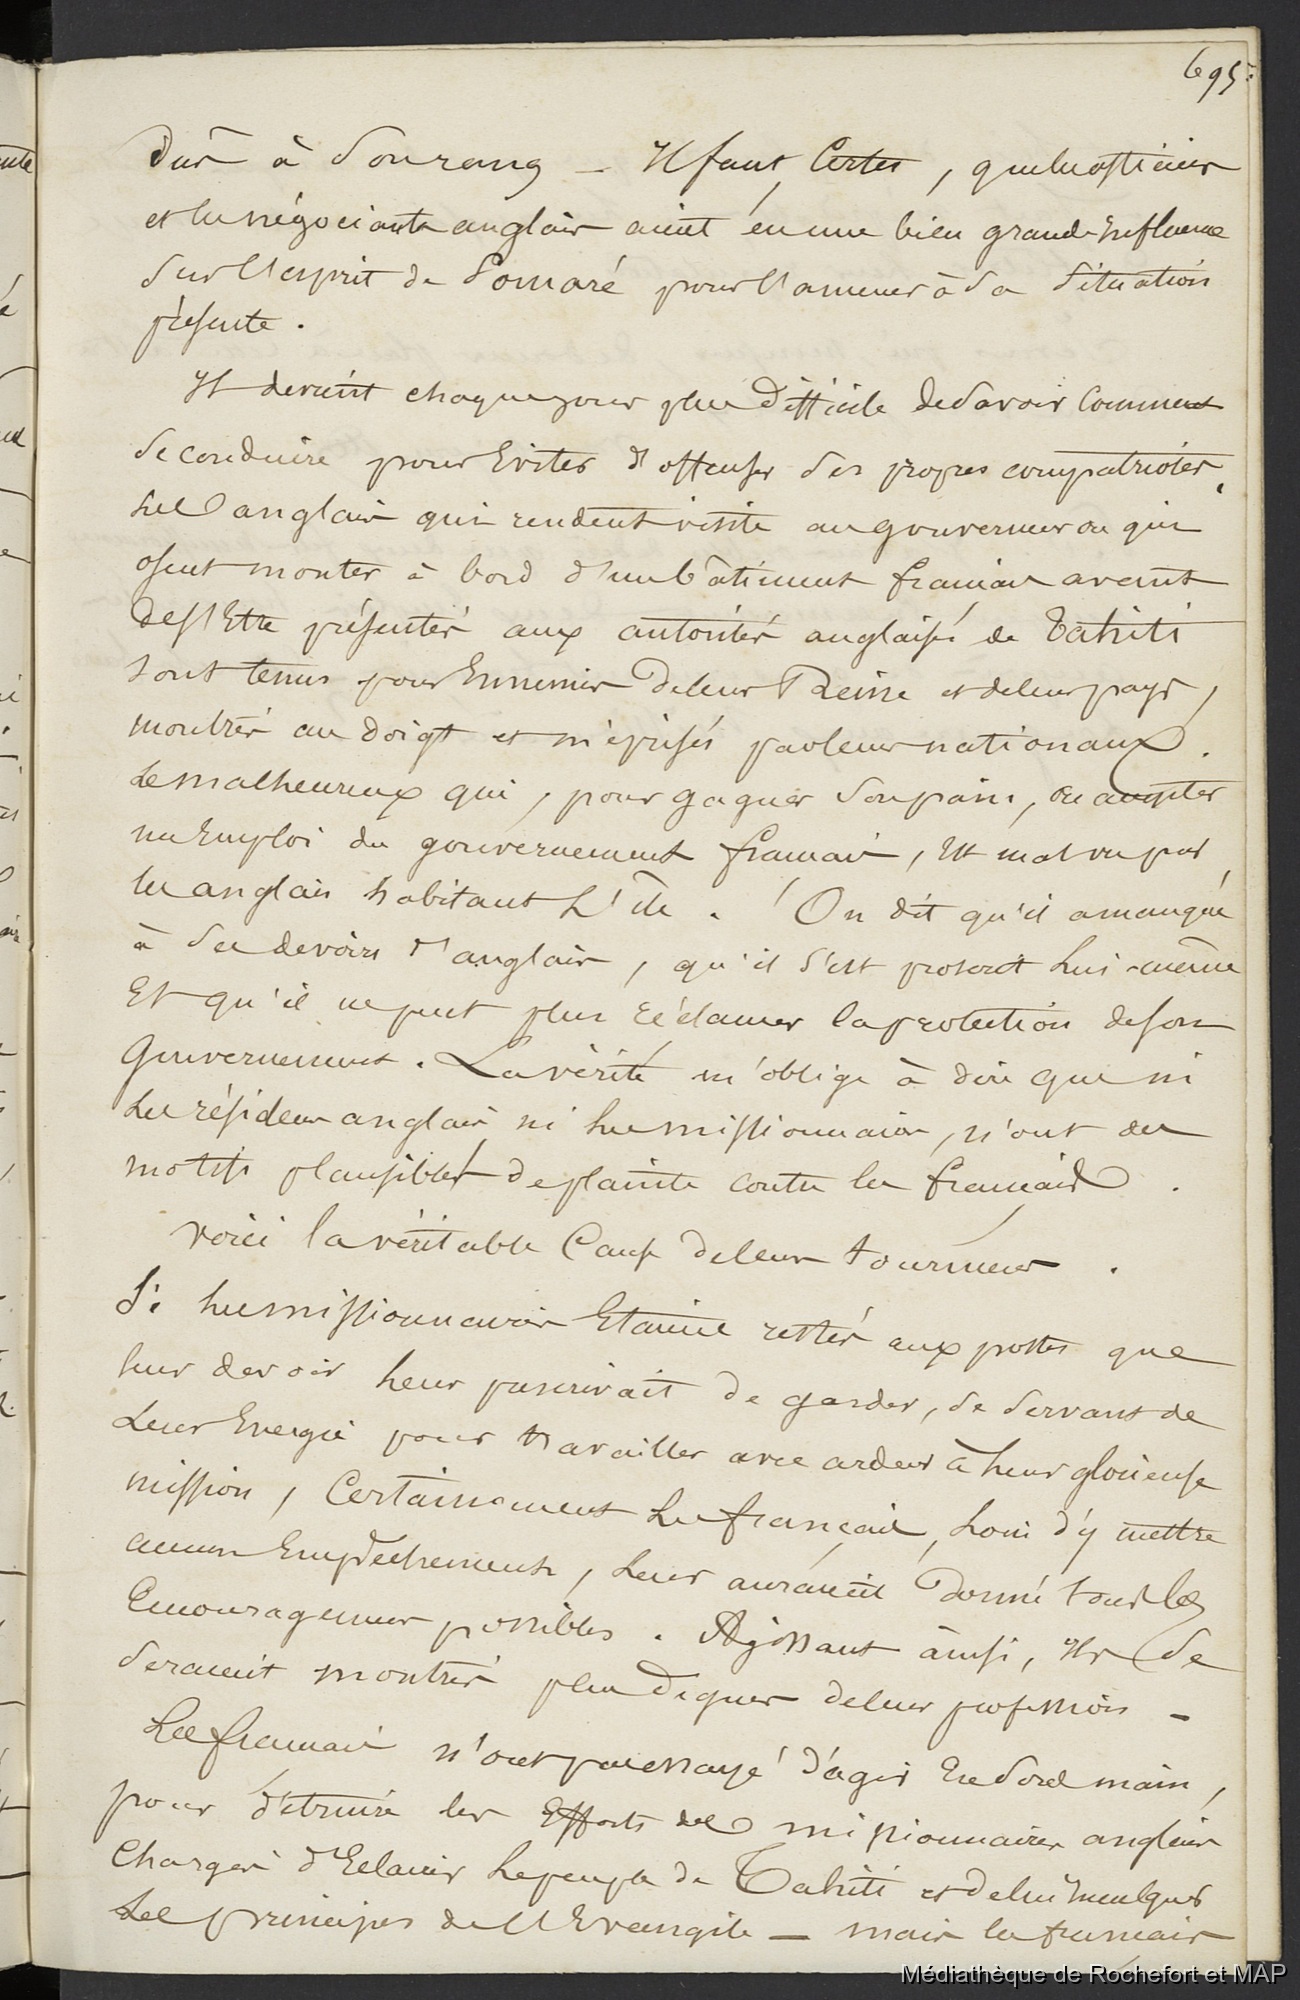 695.
dus à son rang _ Il faut, certes, que les officiers
et les négociants anglais aient eu une bien grande influence
sur l'esprit de Pomaré pour l'amener à sa situation
présente.
Il devient chaque jour plus difficile de savoir comment
se conduire pour éviter d'offenser ses propres compatriotes.
Les anglais qui rendent visite au gouverneur ou qui
osent monter à bord d'un bâtiment français avant
de s'être présentés aux autorités anglaises de Tahiti
sont tenus pour Ennemis de leur Reine et de leur pays,
montrés au doigt et méprisés par leurs nationaux.
Le malheureux qui, pour gagner son pain, ose accepter
un Emploi du gouvernement français, est mal vu par
les anglais habitant l'île. On dit qu'il a manqué
à ses devoirs d'anglais, qu'il s'est proscrit lui-même
Et qu'il ne peut plus réclamer la protection de son
Gouvernement. La vérité m'oblige à dire que ni
les résidens anglais ni les missionnaires, n'ont des
motifs plausibles de plainte contre les français.
Voici la véritable Cause de leurs tourmens.
Si les missionnaires Etaient restés aux postes que
leur devoir leur prescrivait de garder, se servant de
leur Energie pour travailler avec ardeur à leur glorieuse
mission, Certainement les français, loin d'y mettre
aucun Empêchement, leur auraient donné tous les
Encouragemens possibles. Agissant ainsi, Ils se
seraient montrés plus dignes de leur profession _
Les français n'ont pas essayé d'agir En sous main,
pour détruire les Efforts des missionnaires anglais
Chargés d'Eclairer le peuple de Tahiti et de lui inculquer
les principes de l'Evangile _ mais les français
Médiathèque de Rochefort et MAP